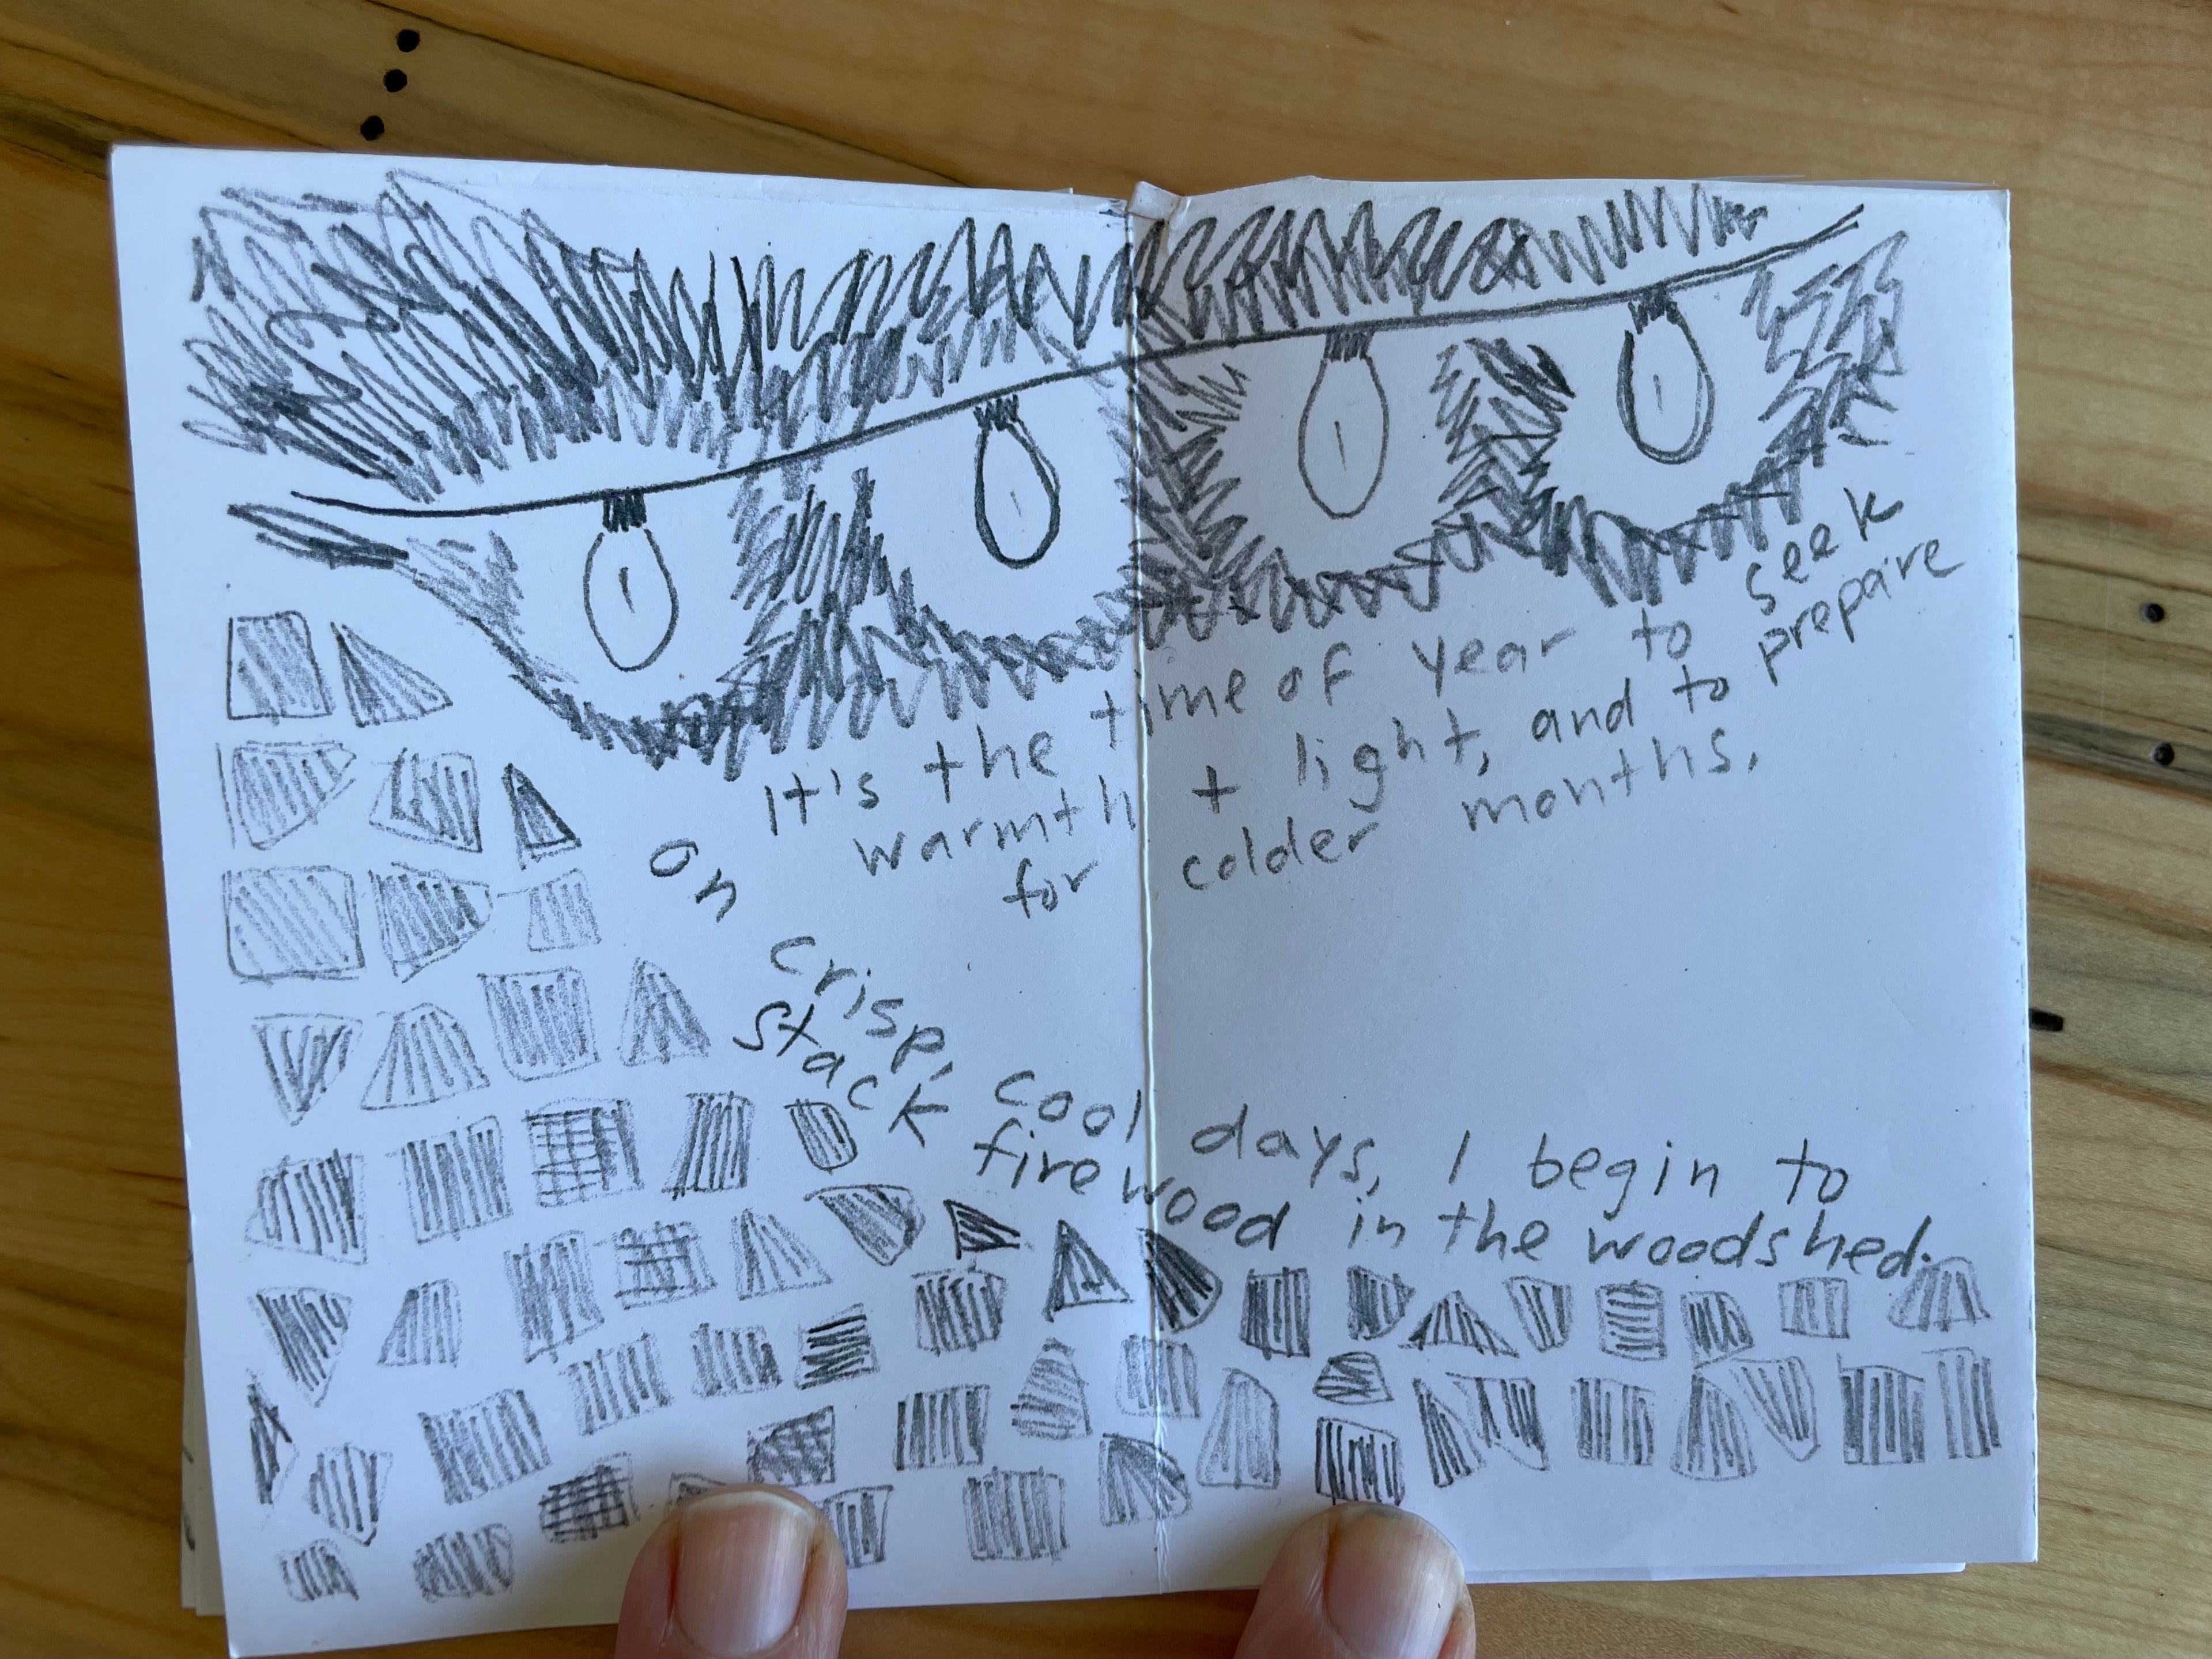 It's the time of year to seek
warmth + light, and to prepaire
for colder months.
on crisp, cool days, I begin to
stack firewood in the woodshed.